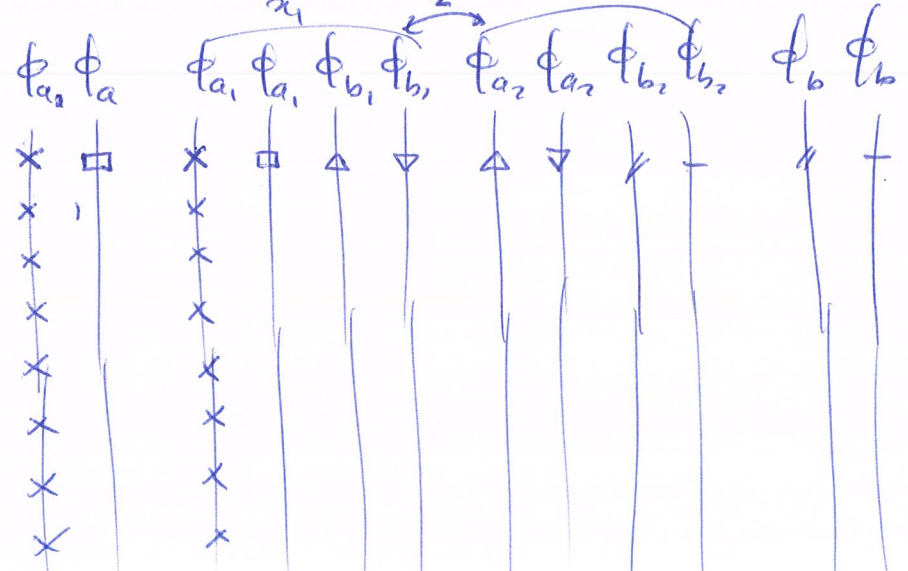 ϕa₂ ϕa ϕa₁ ϕa₁ ϕb₁ ϕb₁ ϕa₂ ϕa₂ ϕb₂ ϕb₂ ϕb ϕb